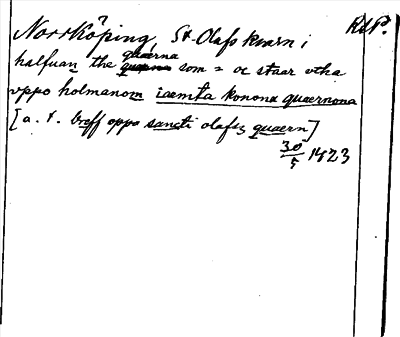 Norrköping, St. Olafs kvarn i RAP.
halfuan the quærna som = oc staar vtha
vppo holmanom iæmta konone quaernona
[a. t. breff oppo sancti olafs quaern]
30/5 1423